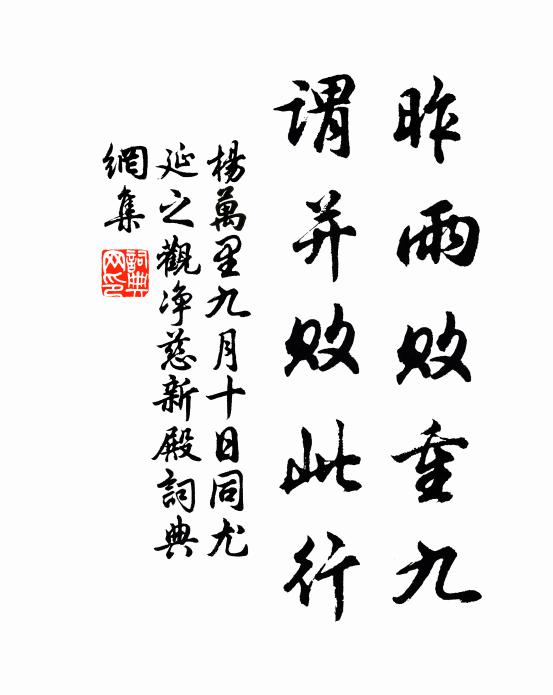 昨雨敗重九
謂并敗此行
楊萬里九月十日同尤
延之觀净慈新殿詞典
網集
詞典
网印